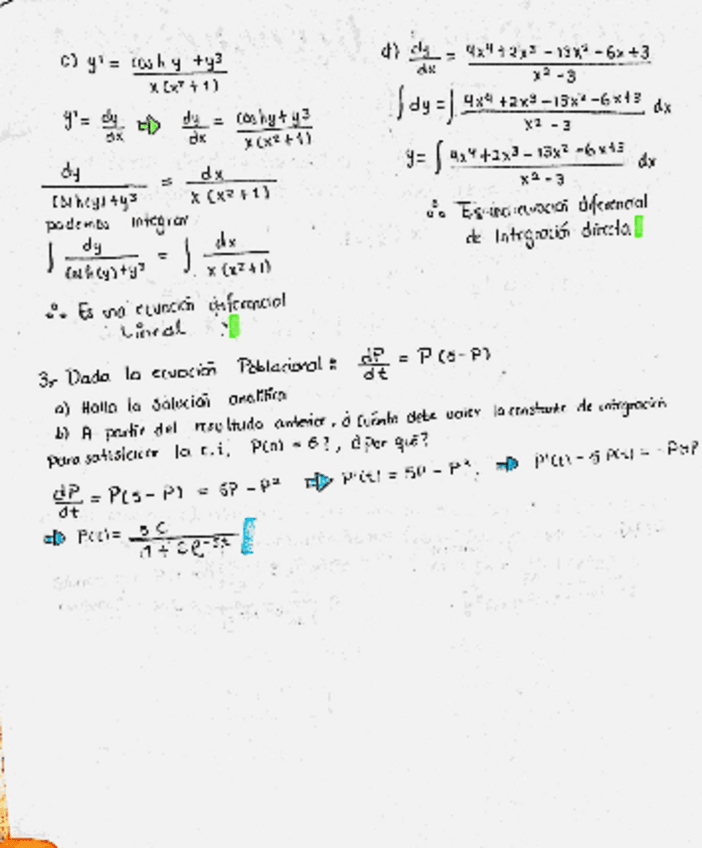 c) y' = cosh y + y³ / x(x²+1)
y' = dy/dx ⇒ dy/dx = cosh y + y³ / x(x²+1)
dy / cosh(y)+y³ = dx / x(x²+1)
podemos integrar
∫ dy / cosh(y)+y³ = ∫ dx / x(x²+1)
∴ Es una ecuación diferencial
Lineal
d) dy/dx = 4x⁴+2x³-13x²-6x+3 / x²-3
∫dy = ∫ 4x⁴+2x³-13x²-6x+3 / x²-3 dx
y = ∫ 4x⁴+2x³-13x²-6x+3 / x²-3 dx
∴ Es una ecuación diferencial
de Integración directa
3.- Dada la ecuación Poblacional: dP/dt = P(5-P)
a) Halla la solución analítica
b) A partir del resultado anterior, ¿cuánto debe valer la constante de integración
para satisfacer la c.i, P(0) = 6?, ¿Por qué?
dP/dt = P(5-P) = 5P - P² ⇒ P'(t) = 5P - P². ⇒ P'(t) - 5P(t) = -
⇒ P(t) = 5C / 1 + Ce